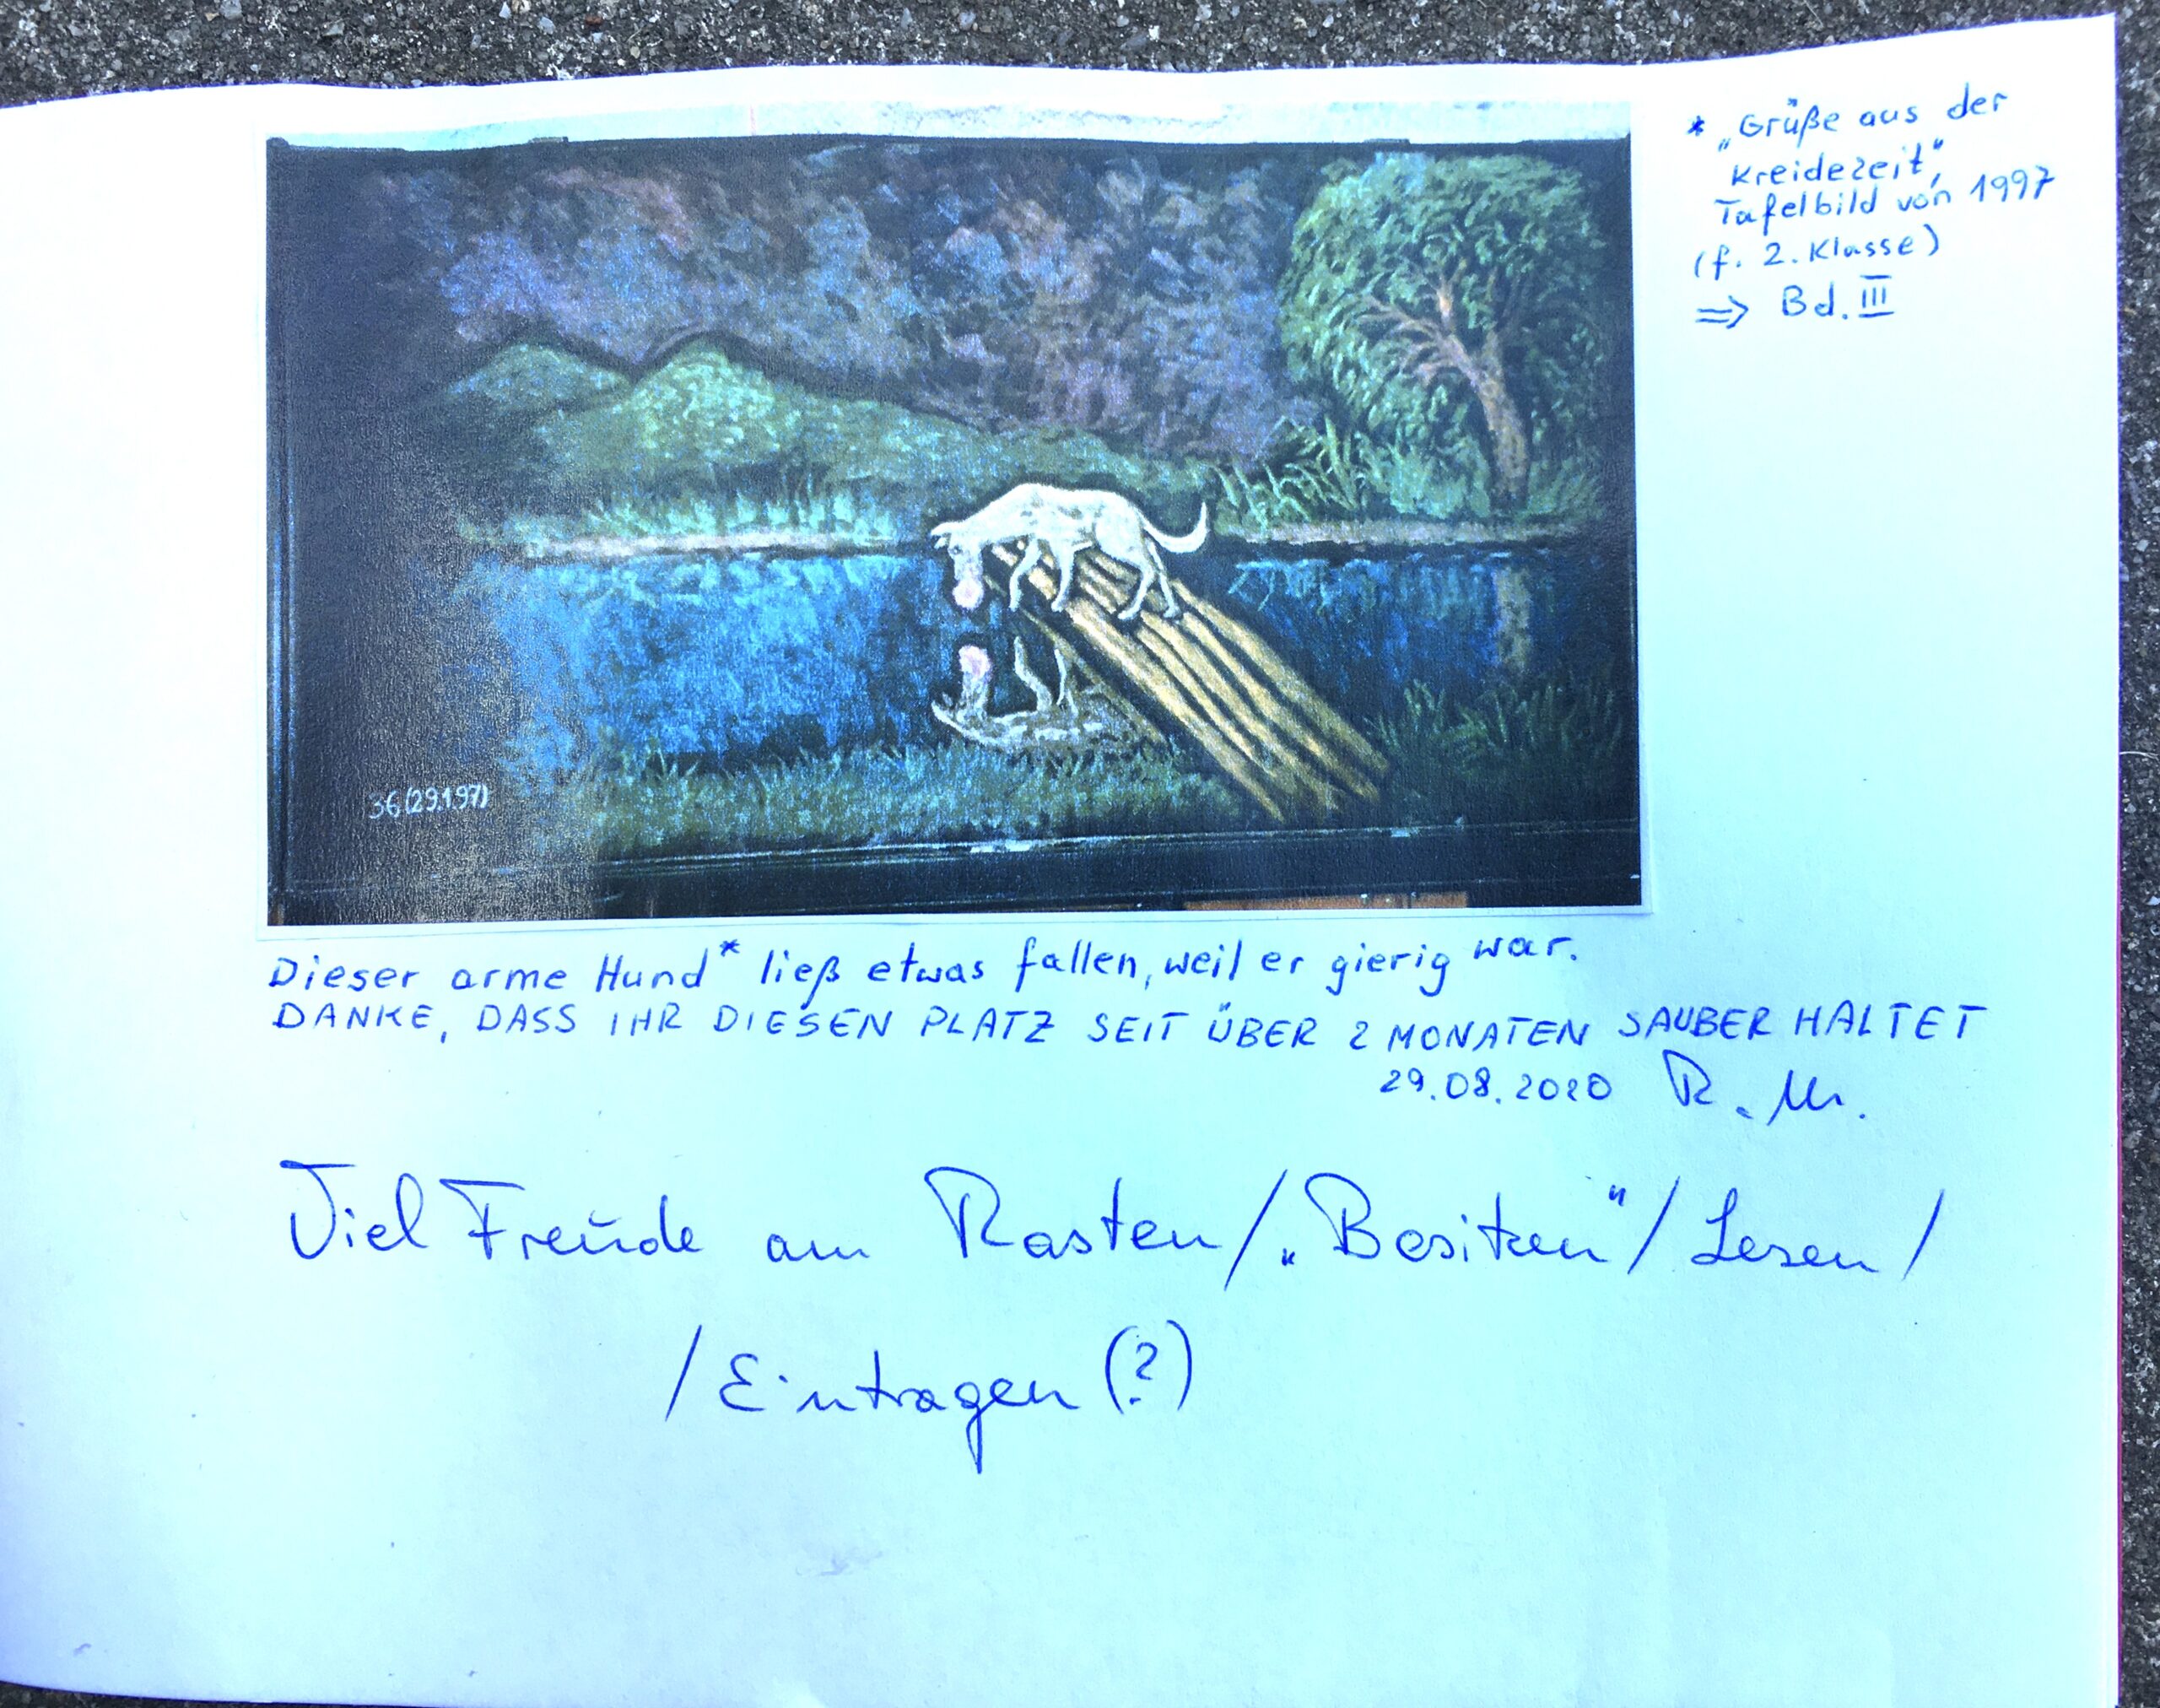 * „Grüße aus der
Kreidezeit",
Tafelbild von 1997
(f. 2. Klasse)
⇒ Bd. III
36 (29.1.97)
Dieser arme Hund* ließ etwas fallen, weil er gierig war.
DANKE, DASS IHR DIESEN PLATZ SEIT ÜBER 2 MONATEN SAUBER HALTET
29.08.2020 R. M.
Viel Freude am Rasten/„Besitzen"/Lesen/
/Eintragen (?)